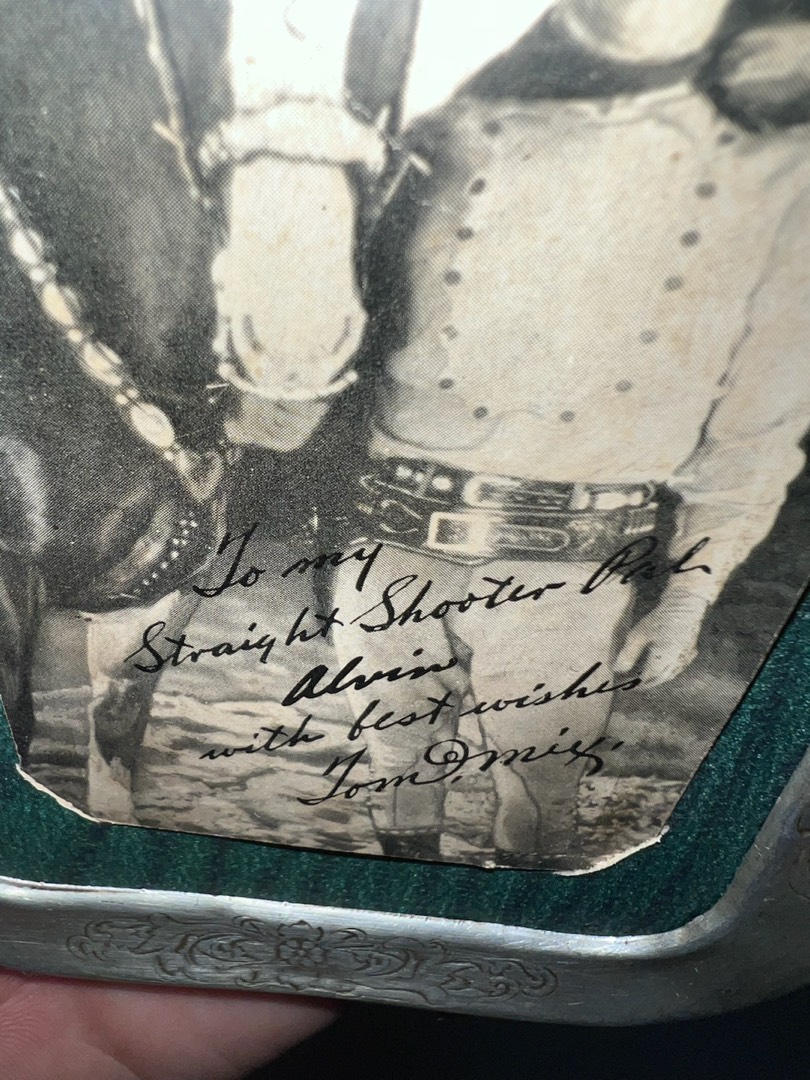 To my
Straight Shooter Pal
Alvin
with best wishes
Tom Mix.